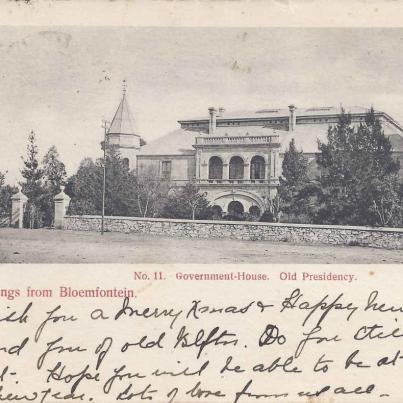 No. 11. Government-House. Old Presidency.
ngs from Bloemfontein.
sh you a Merry Xmas & Happy New
nd you of old Do you still
Hope you will be able to be at
New Year. Lots of love from us all -